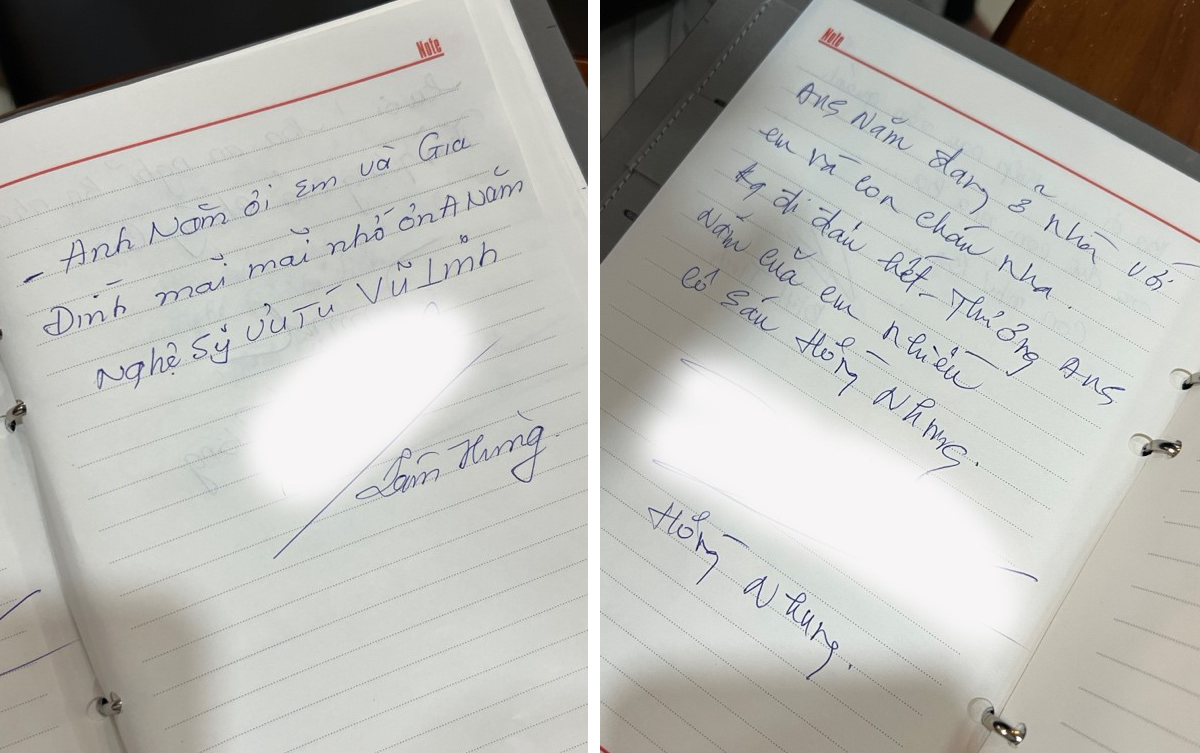 Note
- Anh Năm ơi Em và Gia
Đình mãi mãi nhớ ơn A Năm
Nghệ Sỹ Ưu Tú Vũ Linh
Lâm Hùng.
Note
Anh Năm đang ở nhà với
em và con cháu nha.
kg đi đâu hết - Thương Anh
Năm của em nhiều
Cô Sáu Hồng Nhung.
Hồng Nhung.